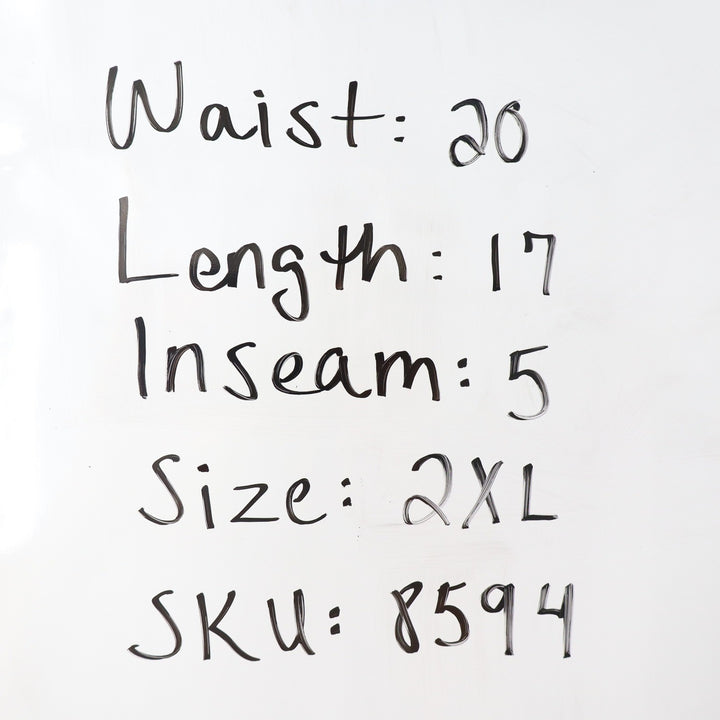 Waist: 20
Length: 17
Inseam: 5
Size: 2XL
SKU: 8594